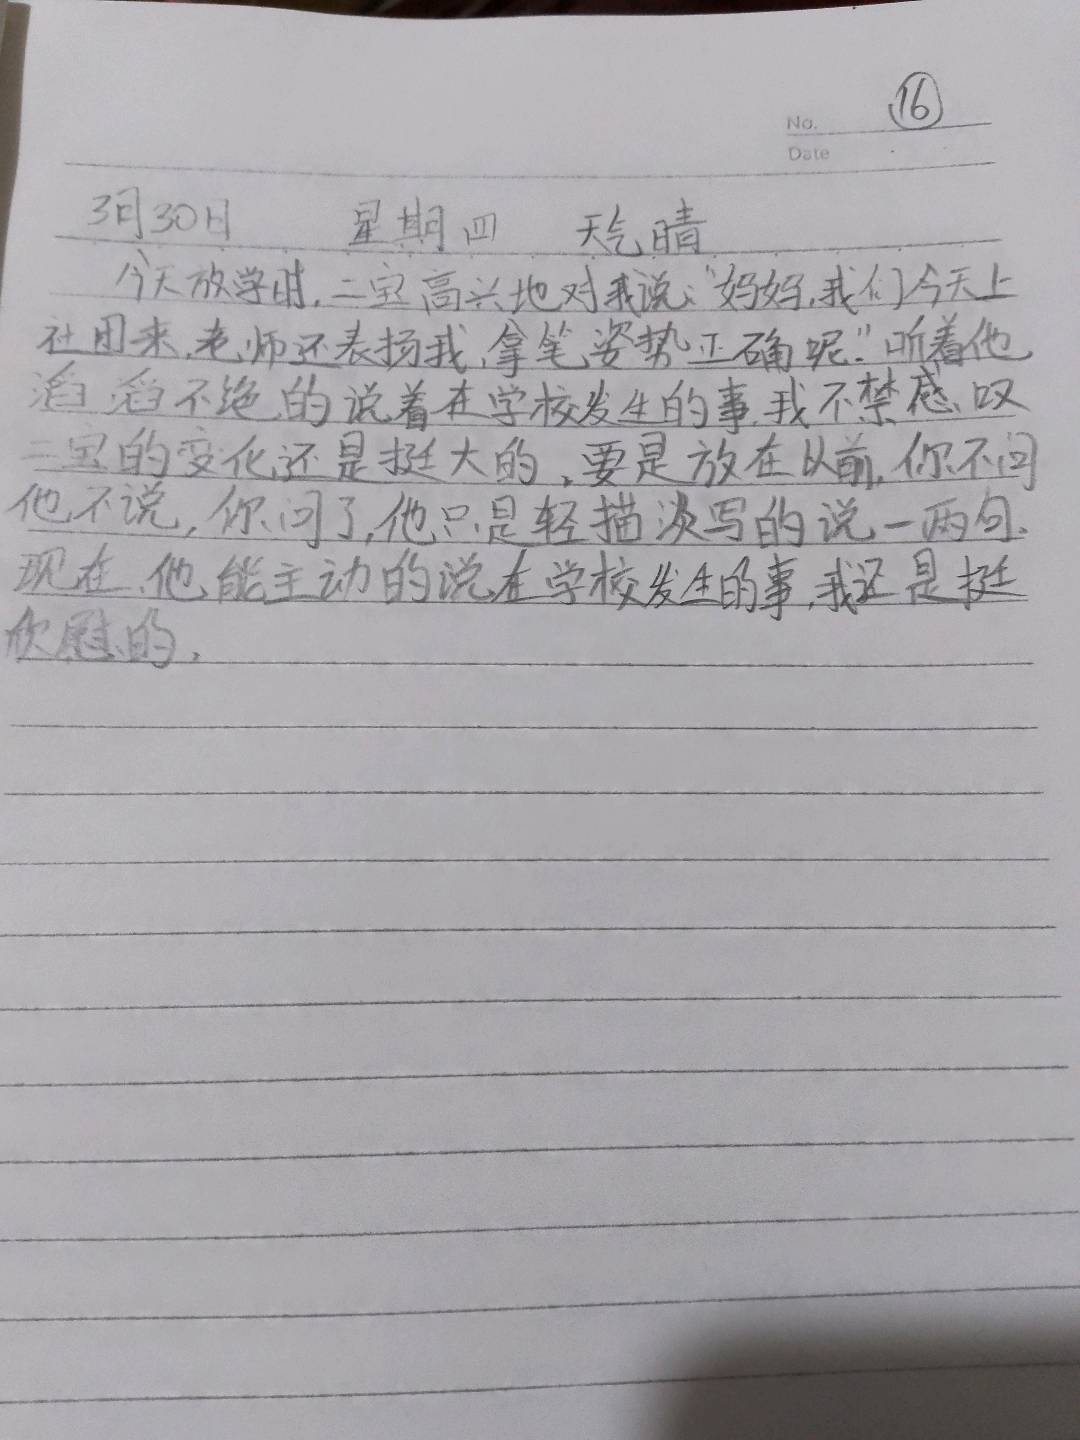 No. 16
Date
3月30日 星期四 天气晴
今天放学时,二宝高兴地对我说:“妈妈,我们今天上
社团来,老师还表扬我,拿笔姿势正确呢.”听着他
滔滔不绝的说着在学校发生的事,我不禁感叹
二宝的变化还是挺大的,要是放在以前,你不问
他不说,你问了,他只是轻描淡写的说一两句.
现在,他能主动的说在学校发生的事,我还是挺
欣慰的.